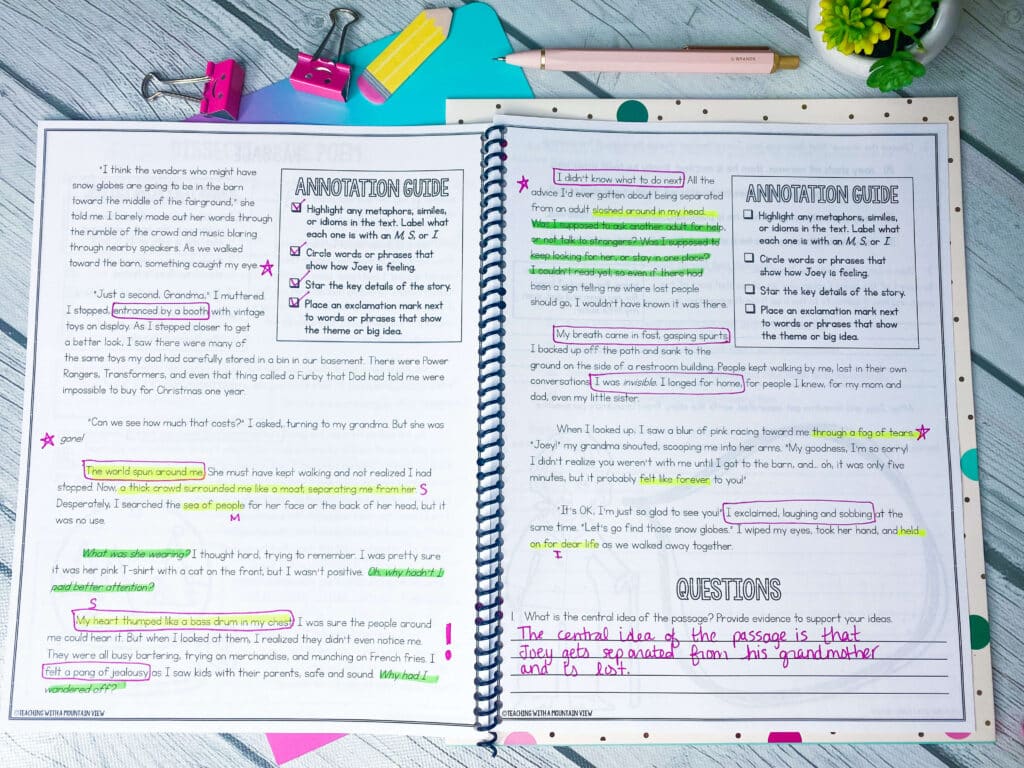 "I think the vendors who might have
snow globes are going to be in the barn
toward the middle of the fairground," she
told me. I barely made out her words through
the rumble of the crowd and music blaring
through nearby speakers. As we walked
toward the barn, something caught my eye.
"Just a second, Grandma," I muttered.
I stopped, entranced by a booth with vintage
toys on display. As I stepped closer to get
a better look, I saw there were many of
the same toys my dad had carefully stored in a bin in our basement. There were Power
Rangers, Transformers, and even that thing called a Furby that Dad had told me were
impossible to buy for Christmas one year.
"Can we see how much that costs?" I asked, turning to my grandma. But she was
gone!
The world spun around me. She must have kept walking and not realized I had
stopped. Now, a thick crowd surrounded me like a moat, separating me from her. S
Desperately, I searched the sea of people for her face or the back of her head, but it
M
was no use.
What was she wearing? I thought hard, trying to remember. I was pretty sure
it was her pink T-shirt with a cat on the front, but I wasn't positive. Oh, why hadn't I
paid better attention?
S
My heart thumped like a bass drum in my chest. I was sure the people around
me could hear it. But when I looked at them, I realized they didn't even notice me.
They were all busy bartering, trying on merchandise, and munching on French fries. I
felt a pang of jealousy as I saw kids with their parents, safe and sound. Why had I
wandered off?
!
©TEACHING WITH A MOUNTAIN VIEW
ANNOTATION GUIDE
Highlight any metaphors, similes,
or idioms in the text. Label what
each one is with an M, S, or I.
Circle words or phrases that
show how Joey is feeling.
Star the key details of the story.
Place an exclamation mark next
to words or phrases that show
the theme or big idea.
I didn't know what to do next. All the
advice I'd ever gotten about being separated
from an adult sloshed around in my head.
Was I supposed to ask another adult for help,
or not talk to strangers? Was I supposed to
keep looking for her, or stay in one place?
I couldn't read yet, so even if there had
been a sign telling me where lost people
should go, I wouldn't have known it was there.
My breath came in fast, gasping spurts.
I backed up off the path and sank to the
ground on the side of a restroom building. People kept walking by me, lost in their own
conversations. I was invisible. I longed for home, for people I knew, for my mom and
dad, even my little sister.
When I looked up, I saw a blur of pink racing toward me through a fog of tears.
"Joey!" my grandma shouted, scooping me into her arms. "My goodness, I'm so sorry!
I didn't realize you weren't with me until I got to the barn, and... oh, it was only five
minutes, but it probably felt like forever to you!"
"It's OK, I'm just so glad to see you!" I exclaimed, laughing and sobbing at the
same time. "Let's go find those snow globes." I wiped my eyes, took her hand, and held
on for dear life as we walked away together.
I
ANNOTATION GUIDE
Highlight any metaphors, similes,
or idioms in the text. Label what
each one is with an M, S, or I.
Circle words or phrases that
show how Joey is feeling.
Star the key details of the story.
Place an exclamation mark next
to words or phrases that show
the theme or big idea.
QUESTIONS
1. What is the central idea of the passage? Provide evidence to support your ideas.
The central idea of the passage is that
Joey gets separated from his grandmother
and is lost.
©TEACHING WITH A MOUNTAIN VIEW